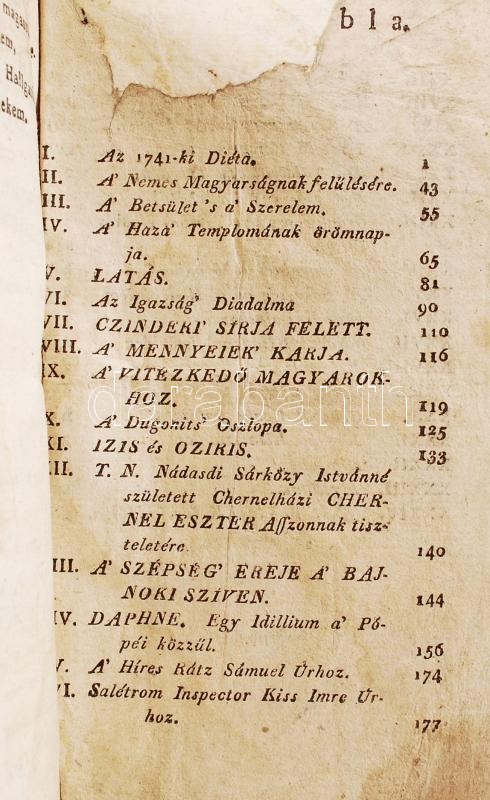 magány
em,
Hallga
ekem.
bla.
I. Az 1741-ki Diéta. 1
II. A' Nemes Magyarságnak felülésére. 43
III. A' Betsület 's a' Szerelem. 55
IV. A' Haza' Templomának örömnap-
ja. 65
V. LATÁS. 81
VI. Az Igazság' Diadalma 90
VII. CZINDERI' SÍRJA FELETT. 110
VIII. A' MENNYEIEK' KARJA. 116
IX. A' VITÉZKEDŐ MAGYAROK-
HOZ. 119
X. A' Dugonits' Oszlopa. 125
XI. IZIS és OZIRIS. 133
XII. T. N. Nádasdi Sárközy Istvánné
született Chernelházi CHER-
NEL ESZTER Aſſzonnak tisz-
teletére 140
III. A' SZÉPSÉG' EREJE A' BAJ-
NOKI SZÍVEN. 144
IV. DAPHNE. Egy Idillium a' Pó-
péi közzül. 156
V. A' Híres Rátz Sámuel Úrhoz. 174
VI. Salétrom Inspector Kiss Imre Úr-
hoz. 177
darabanth